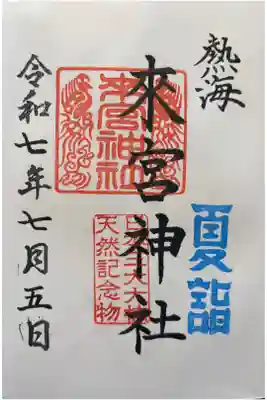 熱海
夏詣
來宮神社
來宮神社
天然記念物
令和七年七月五日